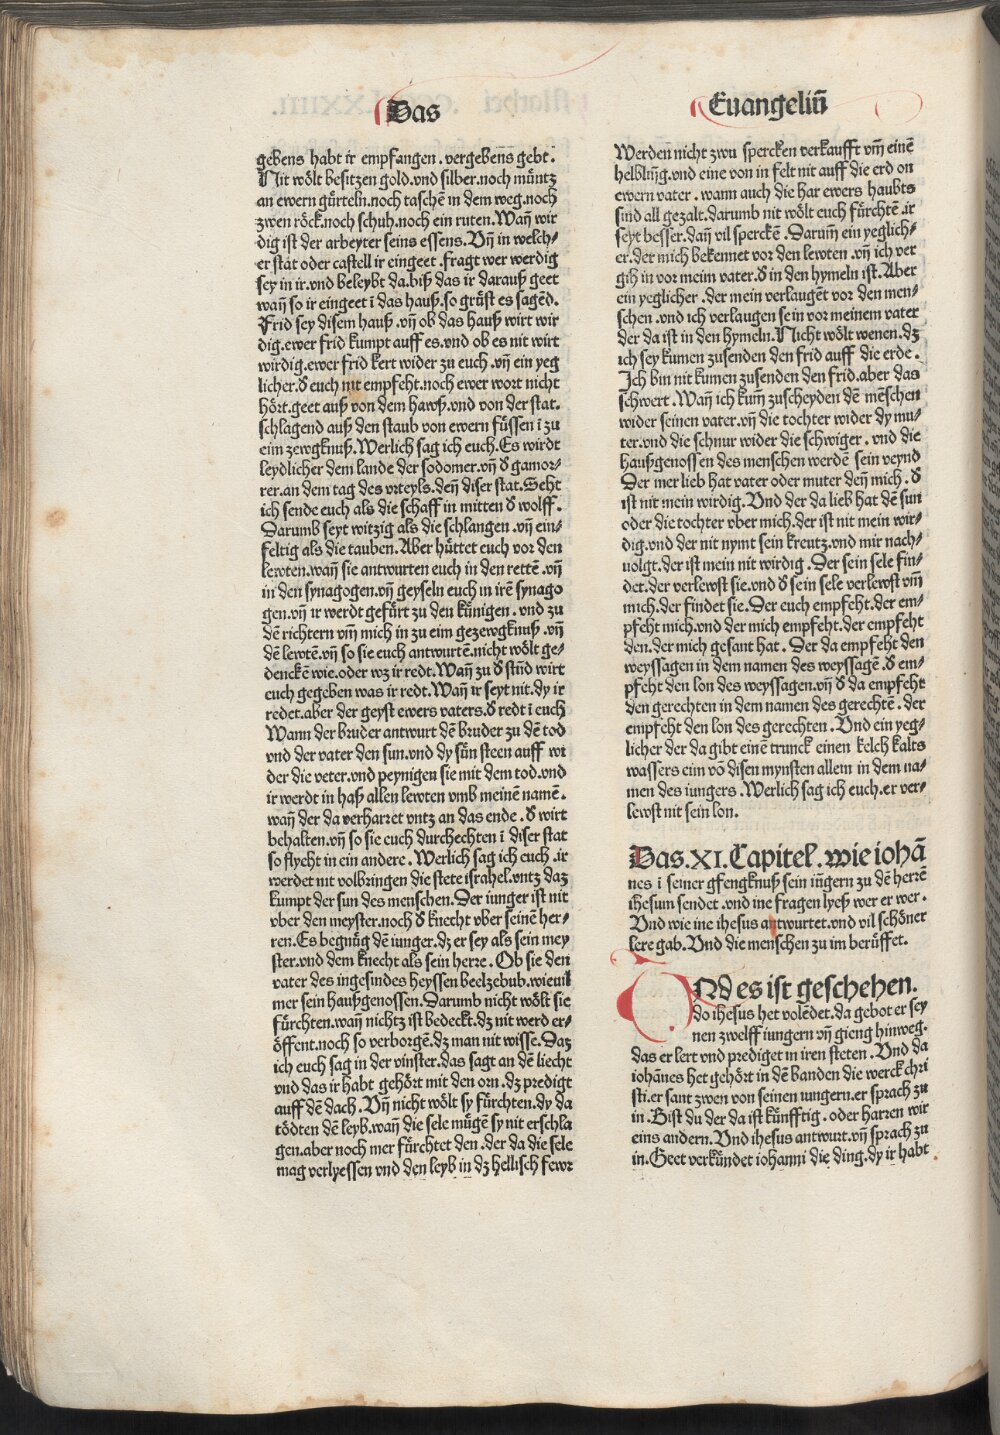 Das
Euangeliū
gebens habt ir empfangen. vergebens gebt.
Nit wo̊lt besitzen gold. vnd silber. noch mu̇ntz
an ewern gu̇rteln. noch taschē in dem weg. noch
zwen ro̊ck. noch schuh. noch ein ruten. Wañ wir
dig ist der arbeyter seins essens. Vñ in welch⸗
er stat oder castell ir eingeet. fragt wer werdig
sey in ir. vnd beleybt da. biß das ir darauß geet
wañ so ir eingeet ī das hauß. so gru̇st es sagēd.
Frid sey disem hauß. vñ ob das hauß wirt wir
dig. ewer frid kumpt auff es. vnd ob es nit wirt
wirdig. ewer frid kert wider zu euch. vñ ein yeg
licher. d̄ euch nit empfeht. noch ewer wort nicht
ho̊rt. geet auß von dem hawß. vnd von der stat.
schlagend auß den staub von ewern fu̇ssen ī zu
eim zewgknuß. Werlich sag ich euch. Es wirdt
leydlicher dem lande der sodomer. vñ d̄ gamor⸗
rer. an dem tag des vrteyls. deñ diser stat. Seht
ich sende euch als die schaff in mitten d̄ wolff.
Darumb seyt witzig als die schlangen. vñ ein⸗
feltig als die tauben. Aber hu̇ttet euch vor den
lewten. wañ sie antwurten euch in den rettē. vñ
in den synagogen. vñ geyseln euch in irē synago
gen. vñ ir werdt gefu̇rt zu den ku̇nigen. vnd zu
dē richtern vm̄ mich in zu eim gezewgknuß. vñ
dē lewtē. vñ so sie euch antwurtē. nicht wo̊lt ge⸗
denckē wie. oder wz ir redt. Wañ zu d̄ stūd wirt
euch gegeben was ir redt. Wañ ir seyt nit. dy ir
redet. aber der geyst ewers vaters. d̄ redt ī euch
Wann der bruder antwurt dē bruder zu dē tod
vnd der vater den sun. vnd dy su̇n steen auff wi
der die veter. vnd peynigen sie mit dem tod. vnd
ir werdt in haß allen lewten vmb meinē namē.
wañ der da verharret vntz an das ende. d̄ wirt
behalten. vñ so sie euch durchechten ī diser stat
so flyeht in ein andere. Werlich sag ich euch. ir
werdet nit volbringen die stete israhel. vntz daz
kumpt der sun des menschen. Der iunger ist nit
vber den meyster. noch d̄ knecht vber seinē her⸗
ren. Es begnu̇g dē iunger. dz er sey als sein mey
ster. vnd dem knecht als sein herre. Ob sie den
vater des ingesindes heyssen beelzebub. wieuil
mer sein haußgenossen. Darumb nicht wo̊lt sie
fu̇rchten. wañ nichtz ist bedeckt. dz nit werd er⸗
o̊ffent. noch so verborgē. dz man nit wisse. Daz
ich euch sag in der vinster. das sagt an dē liecht
vnd das ir habt geho̊rt mit den orn. dz predigt
auff dē dach. Vñ nicht wo̊lt sy fu̇rchten. dy da
to̊dten dē leyb. wañ die sele mu̇gē sy nit erschla
gen. aber noch mer fu̇rchtet den. der da die sele
mag verlyessen vnd den leyb in dz hellisch fewr
Werden nicht zwu spercken verkaufft vm̄ einē
helbling. vnd eine von in felt nit auff die erd on
ewern vater. wann auch die har ewers haubts
sind all gezalt. darumb nit wo̊lt euch fu̇rchtē. ir
seyt besser. dañ vil sperckē. Darum̄ ein yeglich⸗
er. der mich bekennet vor den lewten. vñ ich ver
gih in vor meim vater. d̄ in den hymeln ist. Aber
ein yeglicher. der mein verlaugēt vor den men⸗
schen. vnd ich verlaugen sein vor meinem vater
der da ist in den hymeln. Nicht wo̊lt wenen. dz
ich sey kumen zusenden den frid auff die erde.
Ich bin nit kumen zusenden den frid. aber das
schwert. Wañ ich kum̄ zuscheyden dē mēschen
wider seinen vater. vñ die tochter wider dy mu⸗
ter. vnd die schnur wider die schwiger. vnd die
haußgenossen des menschen werdē sein veynd
Der mer lieb hat vater oder muter deñ mich. d̄
ist nit mein wirdig. Vnd der da lieb hat dē sun
oder die tochter vber mich. der ist nit mein wir⸗
dig. vnd der nit nymt sein kreutz. vnd mir nach⸗
uolgt. der ist mein nit wirdig. Der sein sele fin⸗
det. der verlewst sie. vnd d̄ sein sele verlewst vm̄
mich. der findet sie. Der euch empfeht. der em⸗
pfeht mich. vnd der mich empfeht. der empfeht
den. der mich gesant hat. Der da empfeht den
weyssagen in dem namen des weyssagē. d̄ em⸗
pfeht den lon des weyssagen. vñ d̄ da empfeht
den gerechten in dem namen des gerechtē. der
empfeht den lon des gerechten. Vnd ein yeg⸗
licher der da gibt einē trunck einen kelch kalts
wassers eim vō disen mynsten allein in dem na⸗
men des iungers. Werlich sag ich euch. er ver⸗
lewst nit sein lon.
Das. XI. Capitel. wie iohā
nes ī seiner gfengknuß sein iūgern zu dē herrē
ihesun sendet. vnd ine fragen lyeß wer er wer.
Vnd wie ine ihesus antwurtet. vnd vil scho̊ner
lere gab. Vnd die menschen zu im beru̇ffet.
VNd es ist geschehen.
do ihesus het volēdet. da gebot er sey
nen zwelff iungern vñ gieng hinweg.
das er lert vnd prediget in iren steten. Vnd da
iohānes het geho̊rt in dē banden die werck chri
sti. er sant zwen von seinen iungern. er sprach zu
in. Bist du der da ist ku̇nfftig. oder harren wir
eins andern. Vnd ihesus antwurt. vñ sprach zu
in. Geet verku̇ndet iohanni die ding. dy ir habt